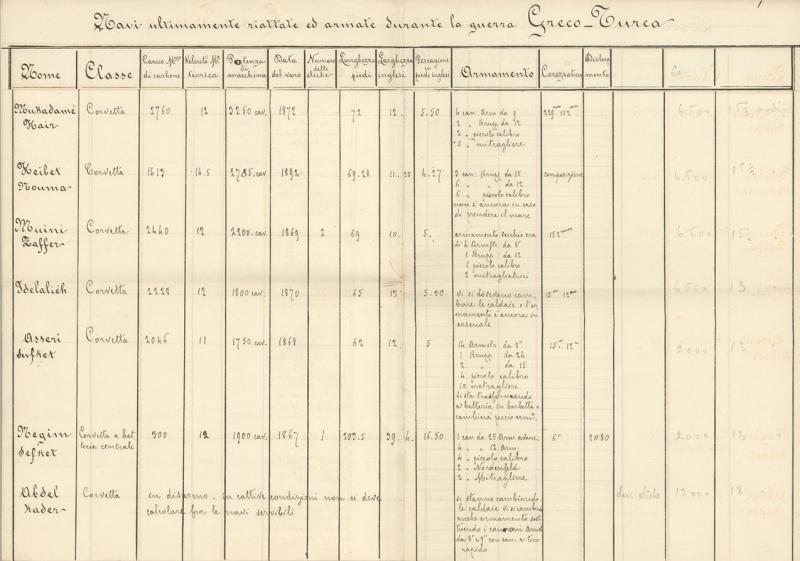 Navi ultimamente riattate ed armate durante la guerra Greco-Turca
Nome Classe Carico Mmo di carbone Velocità Ma teorica Potenza di macchina Data del varo Numero delle eliche Lunghezza piedi Larghezza inglesi Pescagione in piedi inglesi Armamento Corazzatura Dislocamento
Mukadamè Hair Corvetta 2760 12 3250 cav. 1872 72 12. 5.50
4 can: Arm da 9
2 " Krupp da 12
2 " piccolo calibro
5 " mitragliere
229mm 152mm
6.500
Heibet Nouma Corvetta 1413 14.5 2785 cav 1892 69.28 11.28 4.27
3 can: Krupp da 15
6 " " da 12
6 " piccolo calibro
non è ancora in caso
di prendere il mare
composizione
6.500 15½
Muini Zaffer Corvetta 2440 12 2200 cav. 1869 2 69 10. 5.
armamento vecchio era
di 4 Armstg da 8"
1 Krupp da 12
1 piccolo calibro
2 mitragliatrici
152mm
6.500
Corvetta 2228 12 1800 cav. 1870 65 13. 5.30
vi si dovevano cam-
biare le caldaie e l'ar-
mamento è ancora in
arsenale
6.500 13
Asseri Sefket Corvetta 2046 11 1750 cav. 1868 62 12. 5
14 Armstg da 8"
1 Krupp da 24
2 " da 15
4 piccolo calibro
10 mitragliere
si sta trasformando
a batteria in barbetta e
cambierà
2000
Negim Sefket Corvetta a batteria centrale 300 12 1900 cav. 1867 1 203.5 39.4. 16.50
1 can da 25 Arm
4 " " 12 Arm.
4 " piccolo calibro
2 " Nordenfeld
2 Mitragliere
6" 2080
2000 13
Abdel Kader Corvetta
in disarmo. in cattive condizioni non si deve
calcolare fra le navi servibili
si stanno cambiando
le caldaie vi si cambia
anche armamento sosti-
tuendo i cannoni Armst
da 8" e 9" con can. a tiro
rapido
due eliche 12.000 18